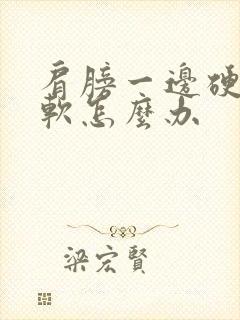 肩膀一邊硬
軟怎麼办
梁宏賢